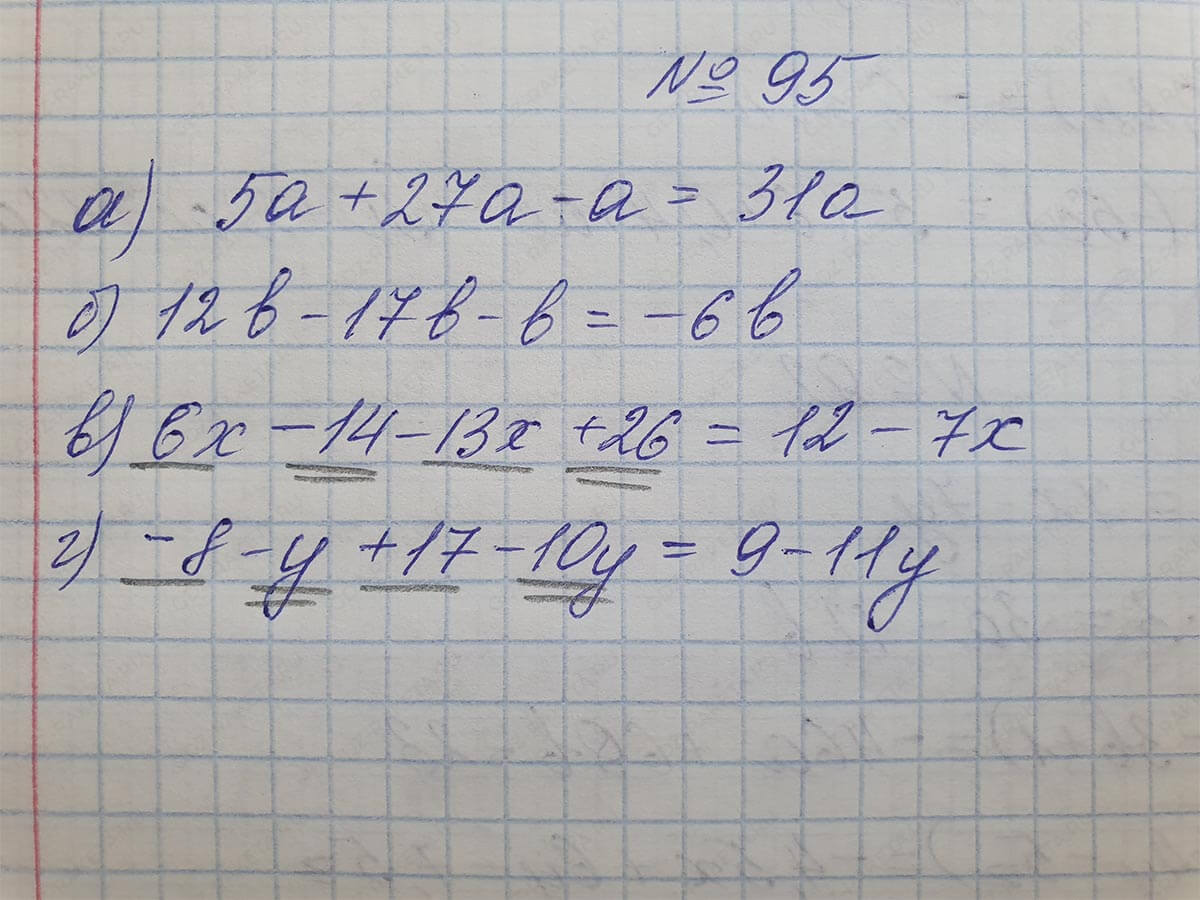 № 95
а) 5a + 27a - a = 31a
б) 12b - 17b - b = -6b
в) 6x - 14 - 13x + 26 = 12 - 7x
г) -8 - y + 17 - 10y = 9 - 11y